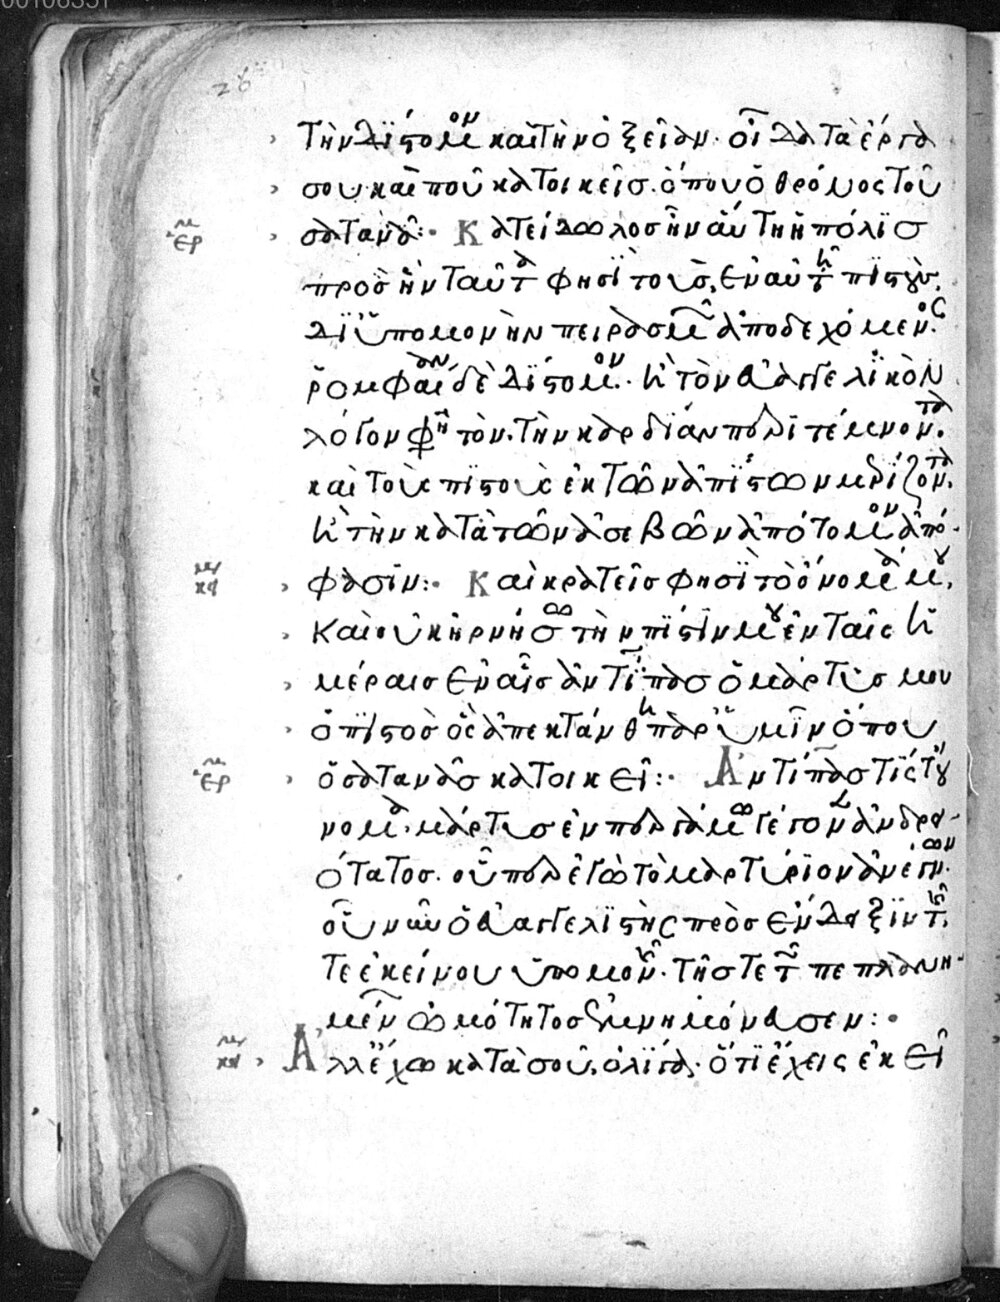 00106351
26
τὴν δίστομον καὶ τὴν ὀξεῖαν· οἶδα τὰ ἔργα
σου καὶ ποῦ κατοικεῖς· ὅπου ὁ θρόνος τοῦ
ερμ σατανᾶ:· Κατείδωλος ἦν αὕτη ἡ πόλις
πρὸς ἣν ταῦτα φησὶ τοὺς ἐν αὐτῇ πιστοὺς,
δι' ὑπομονὴν πειρασμῶν ἀποδεχόμενος·
ῥομφαίαν δὲ δίστομον· ἢ τὸν εὐαγγελικὸν
λόγον φη τὸν· τὴν καρδίαν περιτέμνοντα·
καὶ τοὺς πιστοὺς ἐκ τῶν ἀπίστων μερίζοντα,
ἢ τὴν κατὰ τῶν ἀσεβῶν ἀπότομον ἀπό-
κφ φασιν:· Καὶ κρατεῖς φησὶ τὸ ὄνομά μου,
καὶ οὐκ ἠρνήσω τὴν πίστιν μου ἐν ταῖς ἡ
μέραις ἐν αἷς ἀντίπας ὁ μάρτυς μου
ὁ πιστὸς ὃς ἀπεκτάνθη παρ' ὑμῖν ὅπου
ερμ ὁ σατανᾶς κατοικεῖ:· Ἀντίπας τις τοὔ
νομα, μάρτυς ἐν περγάμῳ γέγονεν ἀνδρει-
ότατος· οὗπερ ἐγὼ τὸ μαρτύριον ἀνέγνων·
οὗ νῦν ὁ εὐαγγελιστὴς πρὸς ἔνδειξιν τῆς
τε ἐκείνου ὑπομονῆς· τῆς τε τῶν πεπλανη-
μένων ὠμότητος ἐμνημόνευσεν:·
κα Ἀλλ' ἔχω κατὰ σοῦ, ὀλίγα· ὅτι ἔχεις ἐκεῖ